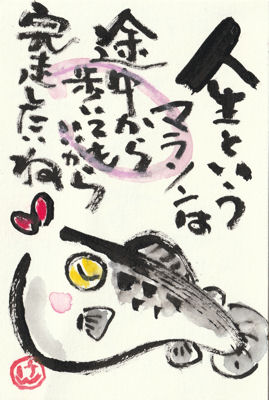 人生という
マラソンは
途中から
歩いてもいいから
完走したいね
けん